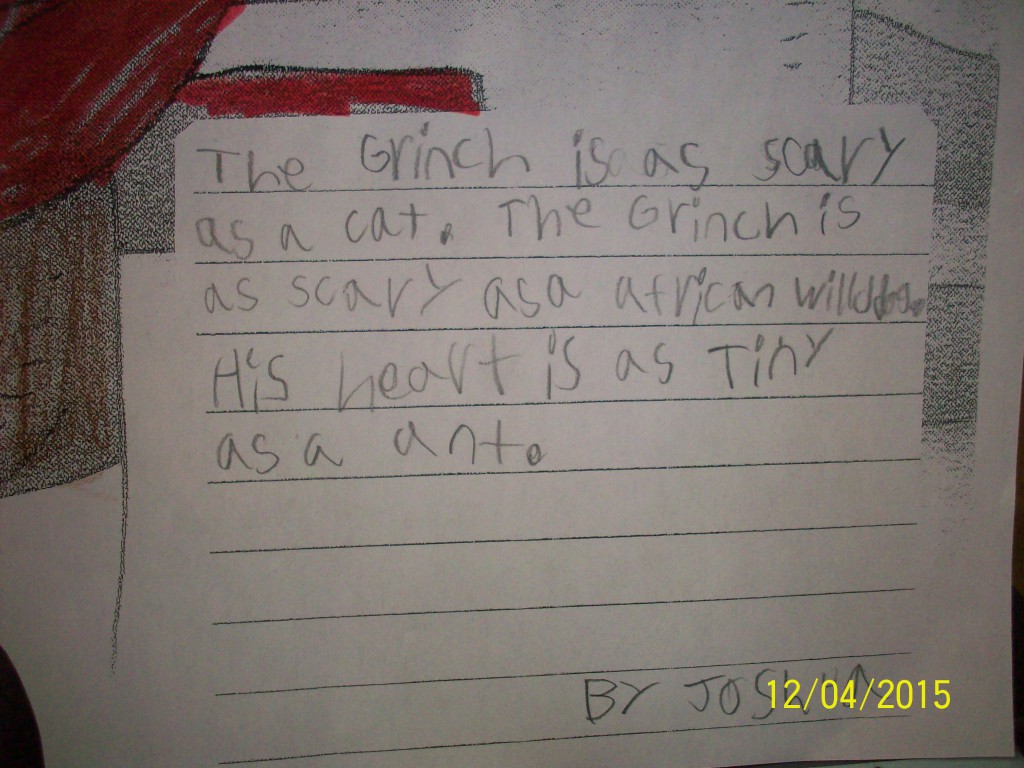 The Grinch is as scary
as a cat. The Grinch is
as scary as a african willddog.
His heart is as Tiny
as a ant.
BY JOSHUA
12/04/2015